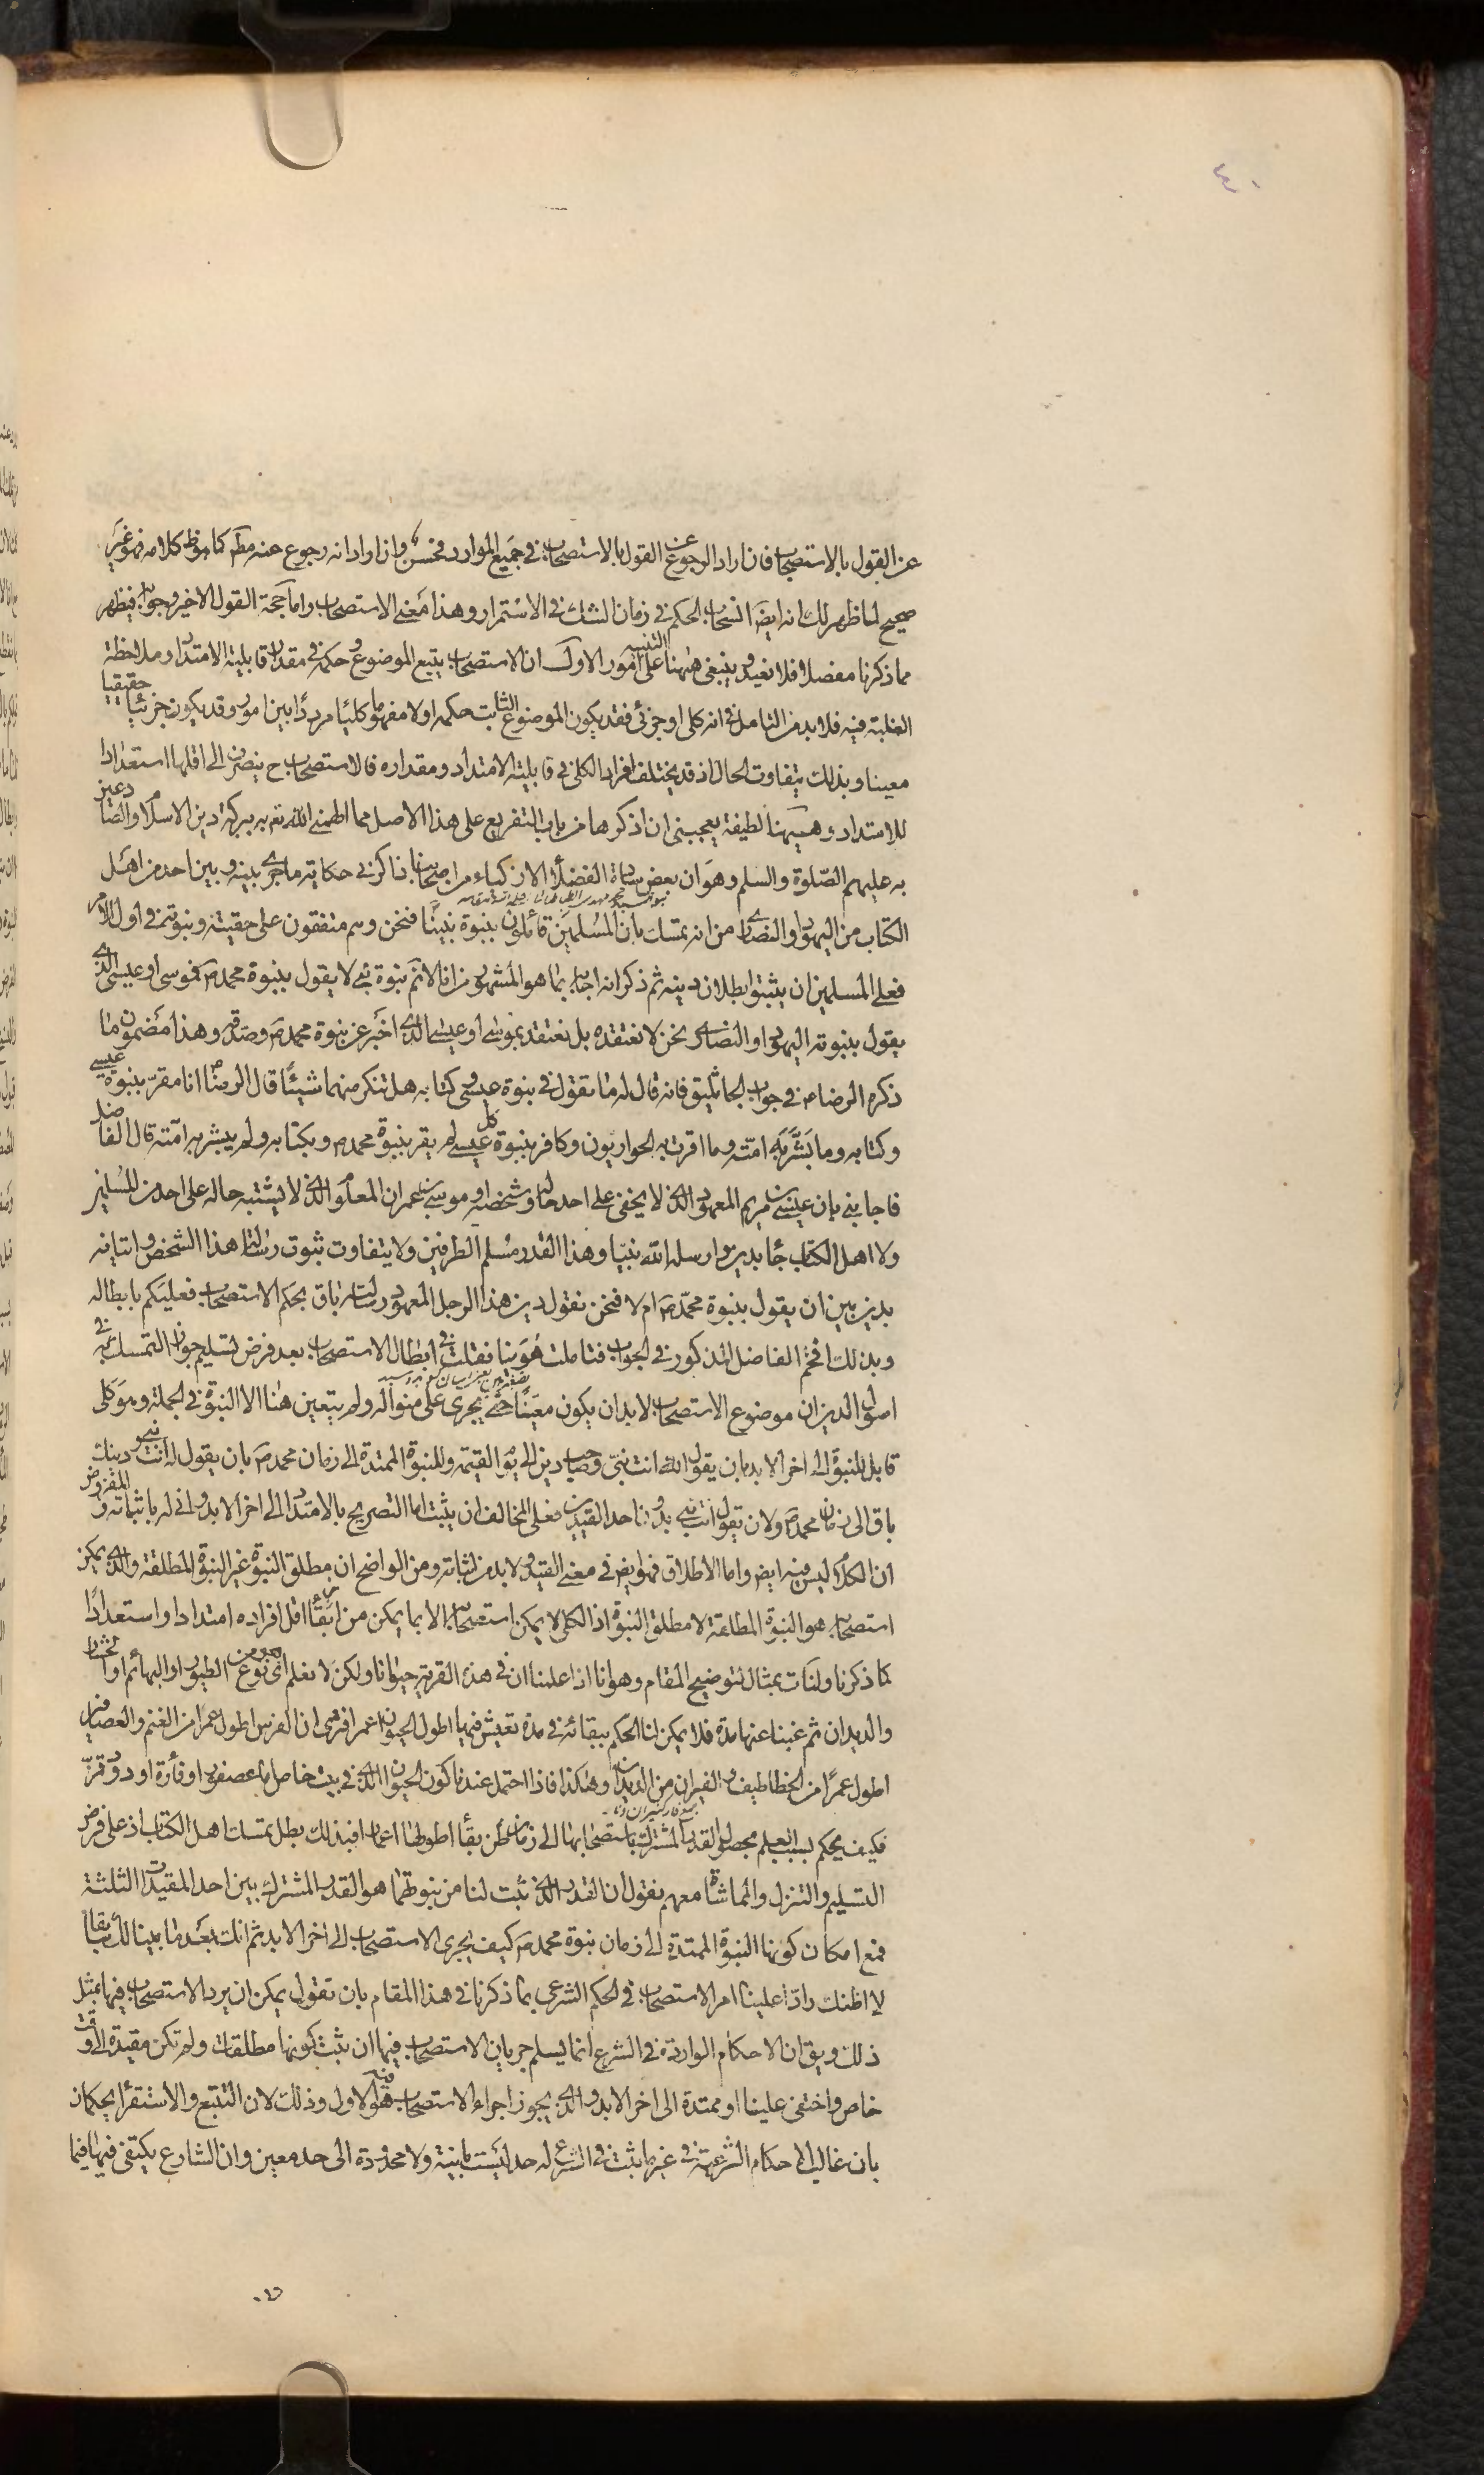 ٤٠
عن القول بالاستصحاب فان اراد الرجوع عن القول بالاستصحاب في جميع الموارد فحسن وان اراد انه رجوع عنه مط كما هو ظ كلامه فهو غير
صحيح لما ظهر لك انه ايض انسحاب الحكم في زمان الشك في الاستمرار وهذا معنى الاستصحاب واما حجة القول الاخير وجوابه فيظهر
مما ذكرنا مفصلا فلا نعيد وينبغي ههنا التنبيه على امور الاول ان الاستصحاب يتبع الموضوع وحكمه في مقدار قابلية الامتداد وملاحظة
الغلبة فيه فلا بد من التامل في انه كلى او جزئى فقد يكون الموضوع الثابت حكمه اولا مفهوما كليا مرددا بين امور وقد يكون جزئيا حقيقيا
معينا وبذلك يتفاوت الحال اذ قد يختلف افراد الكلى في قابلية الامتداد ومقداره فالاستصحاب ح ينصرف الى اقلها استعدادا
للامتداد وههنا لطيفة يعجبني ان اذكرها من باب التفريع على هذا الاصل مما الهمني الله تعم به ببركة دين الاسلام والصادعين
به عليهم الصلوة والسلم وهو ان بعض سادة الفضلاء الازكياء من اصحابنا ذاكرني حكاية ما جرى بينه وبين احد من اهل
الكتاب من اليهود او النصارى من انه تمسك بان المسلمين قائلون بنبوة نبينا فنحن وهم متفقون على حقيته ونبوته في اول الامر
فعلى المسلمين ان يثبتوا بطلان دينه ثم ذكر انه اجابه بما هو المشهور من انا لا نم نبوة نبي لا يقول بنبوة محمد ص فموسى او عيسى الذي
يقول بنبوته اليهود او النصارى نحن لا نعتقده بل نعتقد بموسى او عيسى الذي اخبر عن نبوة محمد ص وصدقه وهذا مضمون ما
ذكره الرضا ع في جواب الجاثليق فانه قال له ما تقول في نبوة عيسى وكتابه هل تنكر منهما شيئا قال الرضا ع انا مقر بنبوة عيسى
وكتابه وما بشر به امته وما اقرت به الحواريون وكافر بنبوة كل عيسى لم يقر بنبوة محمد ص وبكتابه ولم يبشر به امته قال الفاضل
فاجابني بان عيسى بن مريم المعهود الذي لا يخفى على احد حاله وشخصه او موسى بن عمران المعلوم الذي لا يشتبه حاله على احد من المسلمين
ولا اهل الكتاب جاء بدين وارسله الله نبيا وهذا القدر مسلم الطرفين ولا يتفاوت ثبوت رسالة هذا الشخص واتيانه
بدين بين ان يقول بنبوة محمد ص ام لا فنحن نقول دين هذا الرجل المعهود ورسالته باق بحكم الاستصحاب فعليكم بابطاله
وبذلك افحم الفاضل المذكور في الجواب فتاملت هوينا فقلت في ابطال الاستصحاب بعد فرض تسليم جواز التمسك به في
اصول الدين ان موضوع الاستصحاب لا بد ان يكون معينا حتى يجرى على منواله ولم يتعين هنا الا النبوة في الجملة وهو كلى
قابل للنبوة الى اخر الابد بان يقول الله انت نبي وصاحب دين الى يوم القيمة وللنبوة الممتدة الى زمان محمد ص بان يقول له انت نبي ودينك
باق الى زمان محمد ص ولان يقول انت نبي بدون احد القيدين فعلى المخالف ان يثبت اما التصريح بالامتداد الى اخر الابد وانى له باثباته والمفروض
ان الكلام ليس فيه ايض واما الاطلاق فهو ايض في معنى القيد ولا بد من اثباته ومن الواضح ان مطلق النبوة غير النبوة المطلقة والذي يمكن
استصحابه هو النبوة المطلقة لا مطلق النبوة اذ الكلى لا يمكن استصحابه الا بما يمكن من ابقاء اقل افراده امتدادا واستعدادا
كما ذكرنا ولنات بمثال لتوضيح المقام وهو انا اذا علمنا ان في هذه القرية حيوانا ولكن لا نعلم اى نوع هو من الطيور او البهائم او الحشار
والديدان ثم غبنا عنها مدة فلا يمكن لنا الحكم ببقائه في مدة تعيش فيها اطول الحيوان عمرا فترى ان الفرس اطول عمرا من الغنم والعصافير
اطول عمرا من الخطاطيف والفيران من الديدان وهكذا فاذا احتمل عندنا كون الحيوان الذي في بيت خاص اما عصفور او فارة او دود قز
فكيف يحكم بسبب العلم بحصول القدر المشترك باستصحابها الى زمان ظن بقاء اطولها اعمارا فبذلك بطل تمسك اهل الكتاب اذ على فرض
التسليم والتنزل والمماشاة معهم نقول ان القدر الذي ثبت لنا من نبوتهما هو القدر المشترك بين احد المقيدات الثلثة
فمع امكان كونها النبوة الممتدة الى زمان نبوة محمد ص كيف يجرى الاستصحاب الى اخر الابد ثم انك بعد ما بينا لك سابقا
لا اظنك رادا علينا امر الاستصحاب في الحكم الشرعى بما ذكرنا في هذا المقام بان تقول يمكن ان يرد الاستصحاب فيها بمثل
ذلك ويق ان الاحكام الواردة في الشرع انما يسلم جريان الاستصحاب فيها ان ثبت كونها مطلقات ولم تكن مقيدة الى وقت
خاص واختفى علينا او ممتدة الى اخر الابد والذي يجوز اجراء الاستصحاب فيه هو الاول وذلك لان التتبع والاستقراء يحكمان
بان غالب الاحكام الشرعية في غير ما ثبت في الشرع له حد ليست بانية ولا محدودة الى حد معين وان الشارع يكتفى فيها فيما